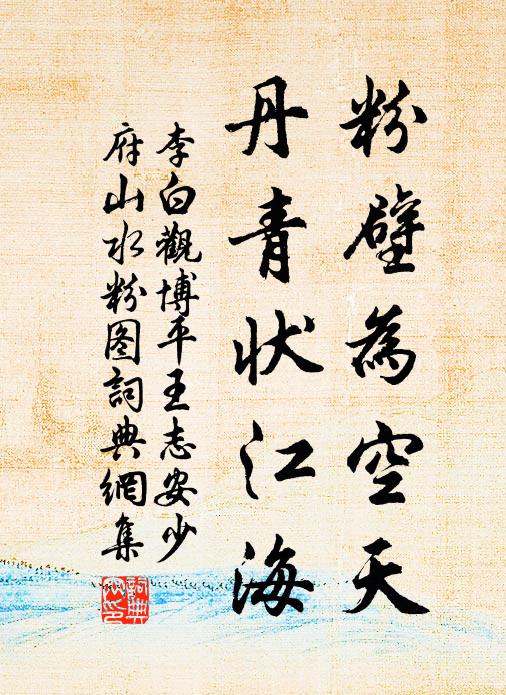 粉壁為空天
丹青状江海
李白觀博平王志安少
府山水粉图詞典網集